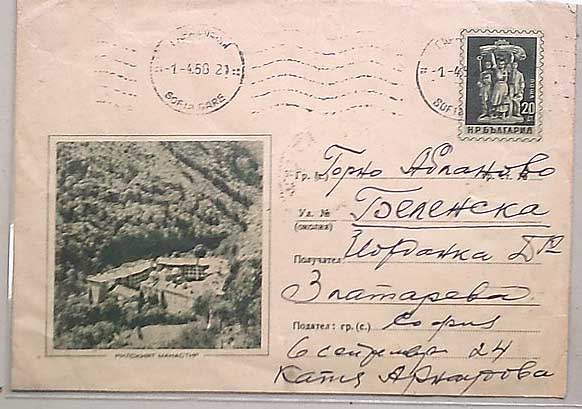 -1.-4.58 21
SOFIA GARE
-1.-4.5
20
Н Р БЪЛГАРИЯ
Гр. (с.) Горно Абланово
Ул. №
(околия) Беленска
Получател Йорданка Д-р
Златарева
Подател: гр. (с.) София
6 септември 24
Катя Арнаудова
РИЛСКИЯТ МАНАСТИР